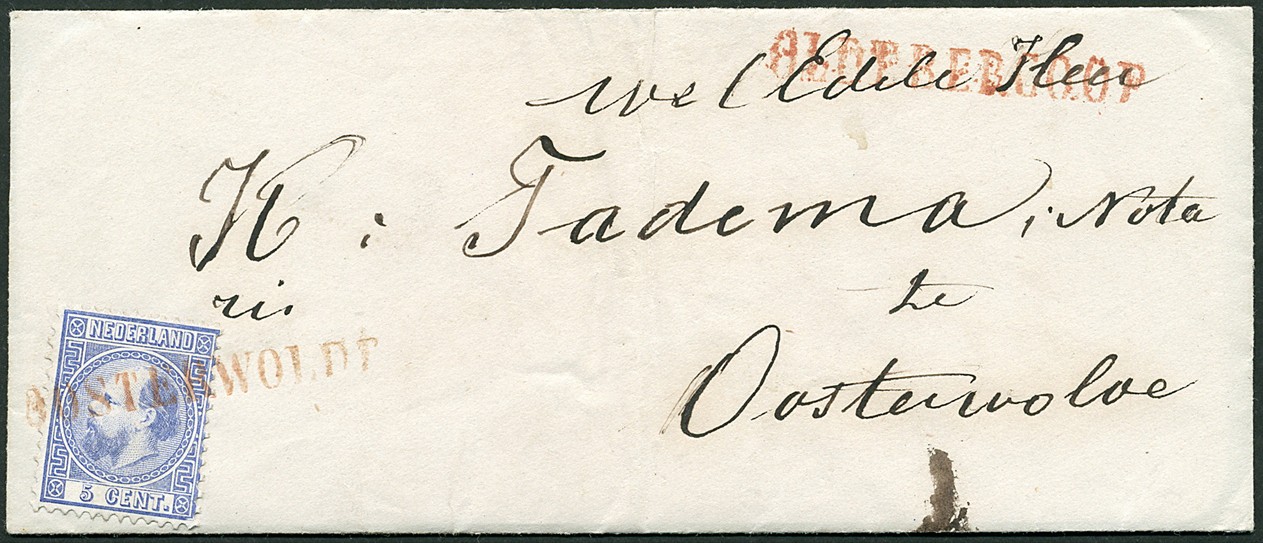 OLDEBERCOOP
wel Edele Heer
K : Tadema, Nota
ris
te
Oosterwolde
NEDERLAND
OOSTERWOLDE
5 CENT.